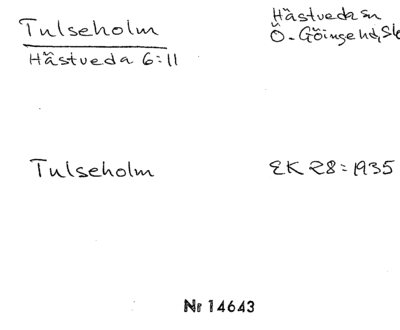 Tulseholm
Hästveda sn
Ö. Göinge hd, Sk
Hästveda 6:11
Tulseholm
EK 28:1935
Nr 14643